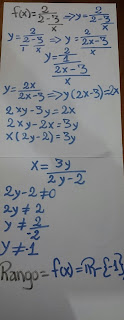 f(x)=2/(2-3/x) ⇒ y=2/(2-3/x)
y=(2/1)/(2/1-3/x) ⇒ y=2/((2x-3)/x)
y=(2/1)/((2x-3)/x)
y=2x/(2x-3) ⇒ y(2x-3)=2x
2xy-3y=2x
2xy-2x=3y
x(2y-2)=3y
x=3y/(2y-2)
2y-2≠0
2y≠2
y≠2/-2
y≠-1
Rango=f(x)=ℝ-{-1}